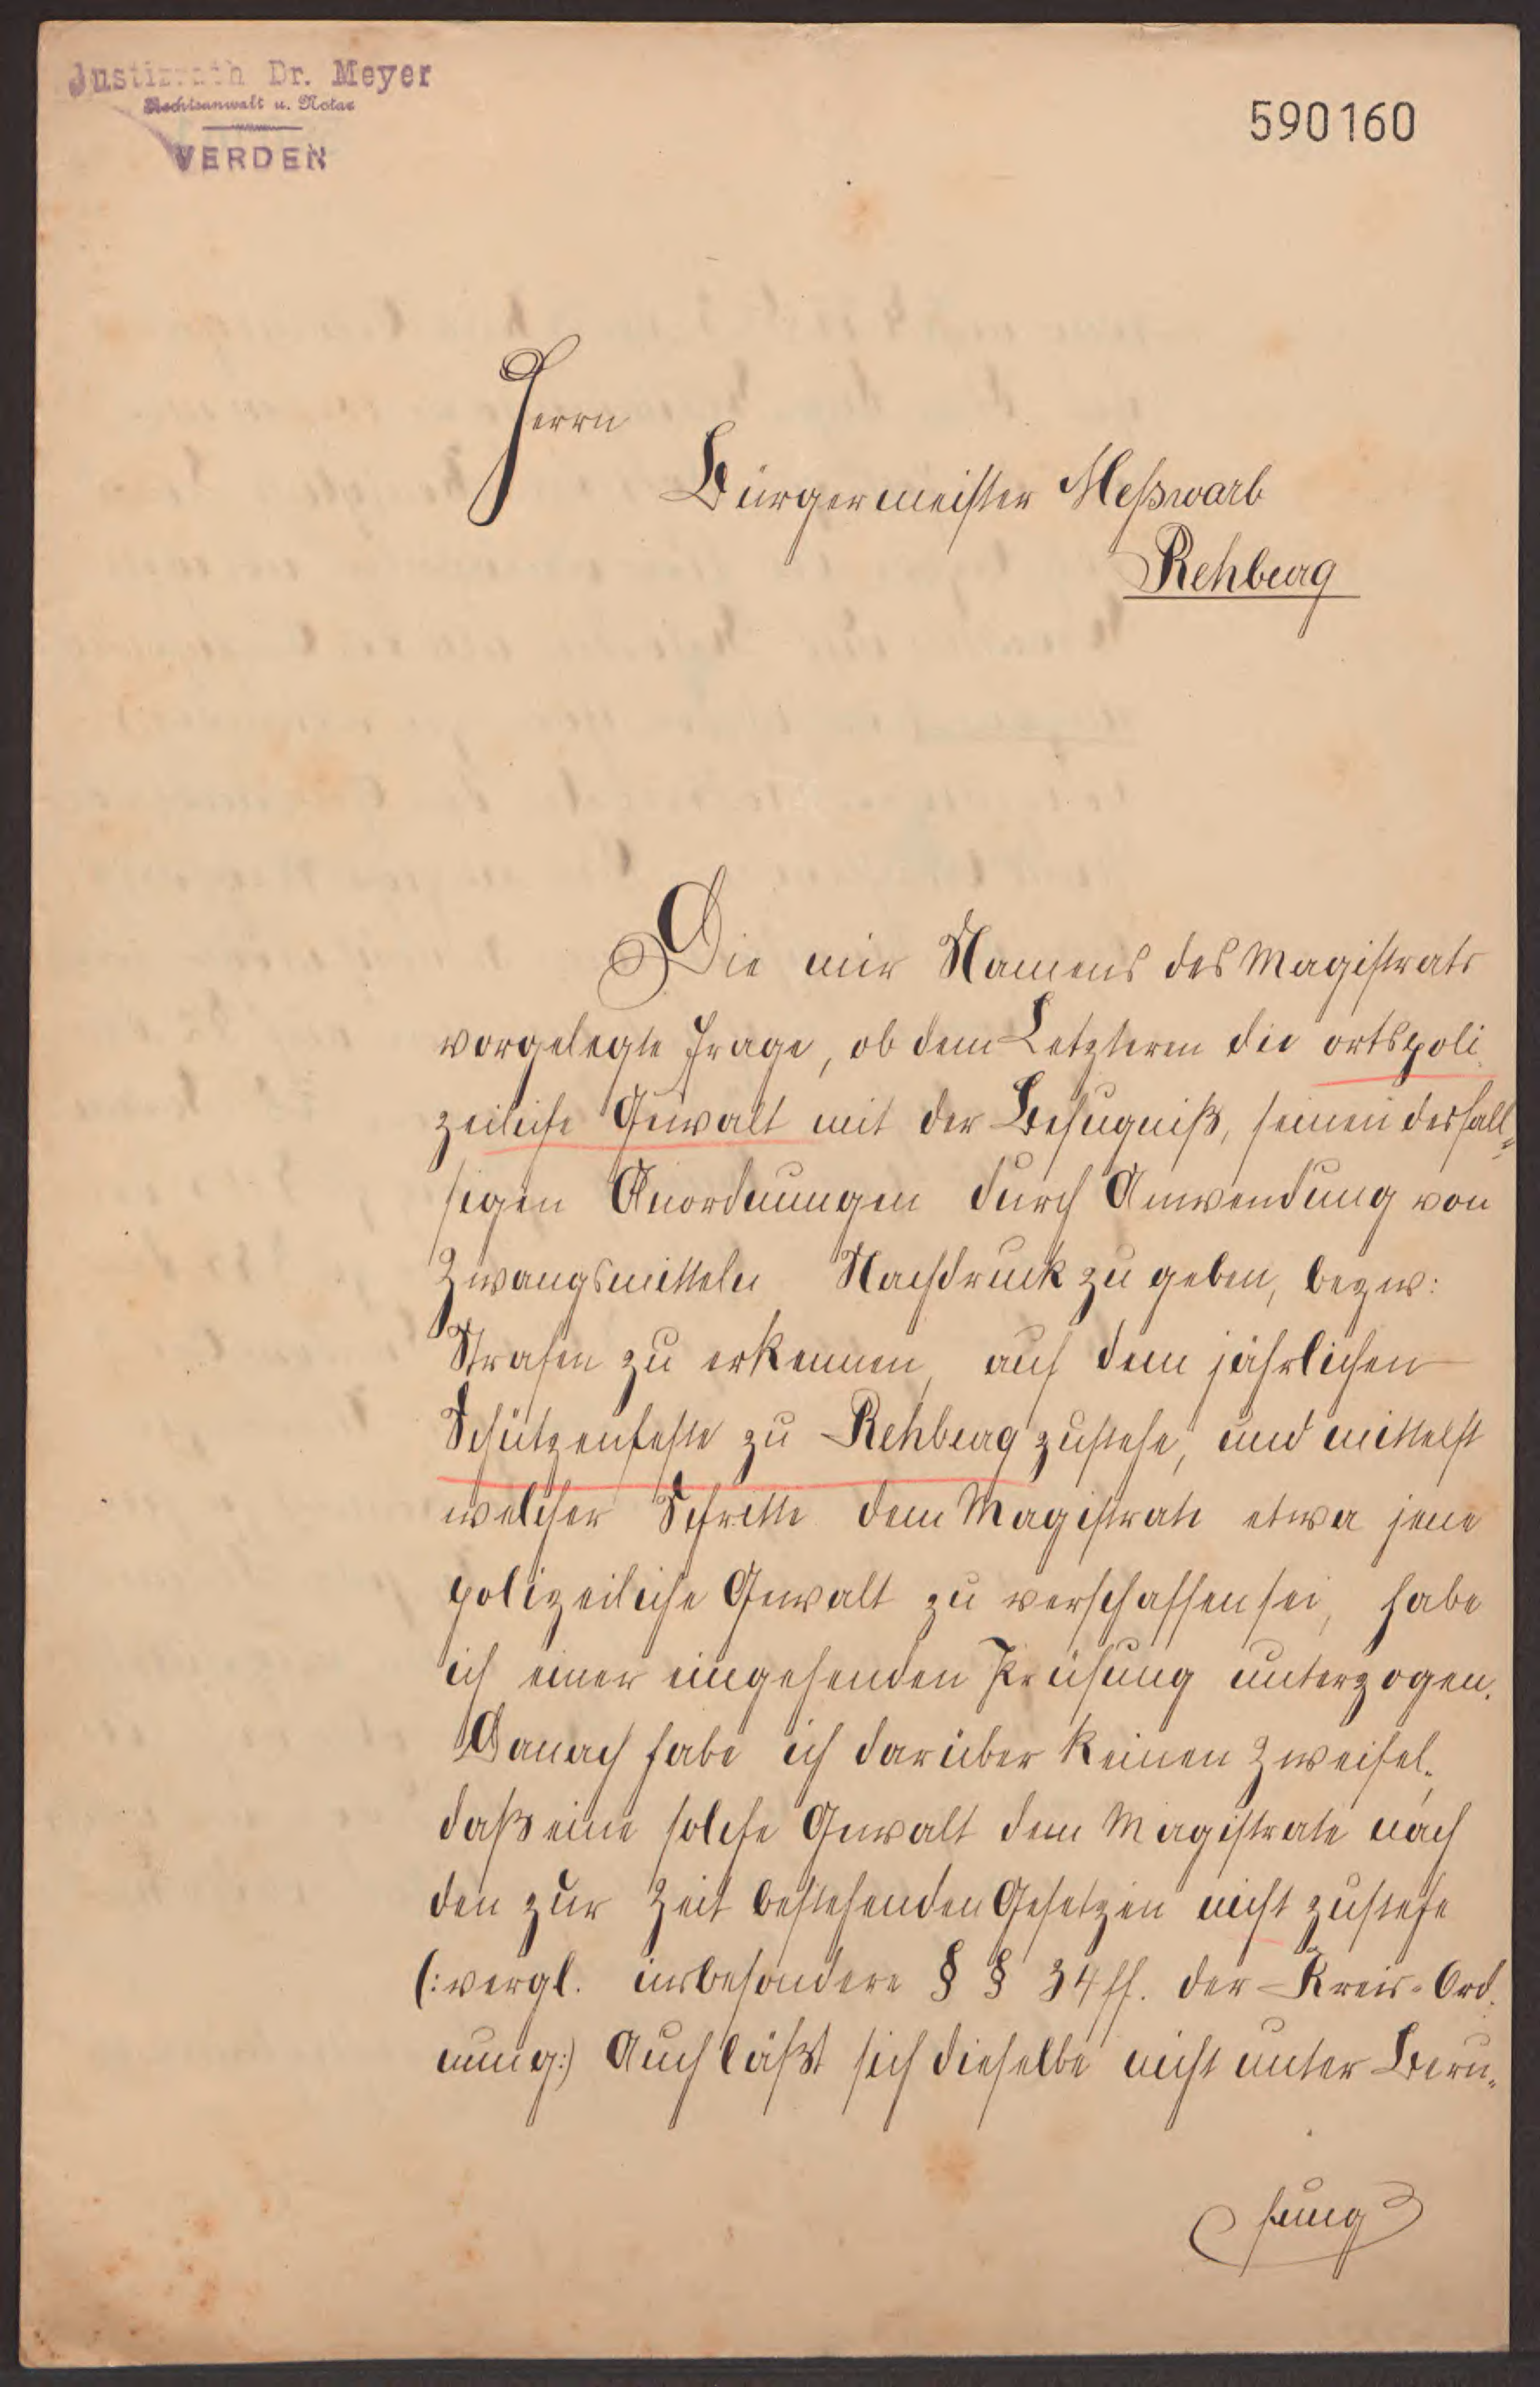 Justizrath Dr. Meyer
Rechtsanwalt u. Notar
VERDEN
590160
Herrn
Bürgermeister Meßwarb
Rehburg
Die mir Namens des Magistrats
vorgelegte Frage, ob dem Letzteren die ortspoli-
zeiliche Gewalt mit der Befugniß, seinen desfall-
sigen Anordnungen durch Anwendung von
Zwangsmitteln Nachdruck zu geben, bezw:
Strafen zu erkennen, auf dem jährlichen
Schützenfeste zu Rehburg zustehe, und mittelst
welcher Schritte dem Magistrate etwa jene
polizeiliche Gewalt zu verschaffen sei, habe
ich einer eingehenden Prüfung unterzogen.
Danach habe ich darüber keinen Zweifel,
daß eine solche Gewalt dem Magistrate nach
den zur Zeit bestehenden Gesetzen nicht zustehe
(: vergl. insbesondere § § 34 ff. der Kreis-Ord-
nung:) Auch läßt sich dieselbe nicht unter Beru-
fung